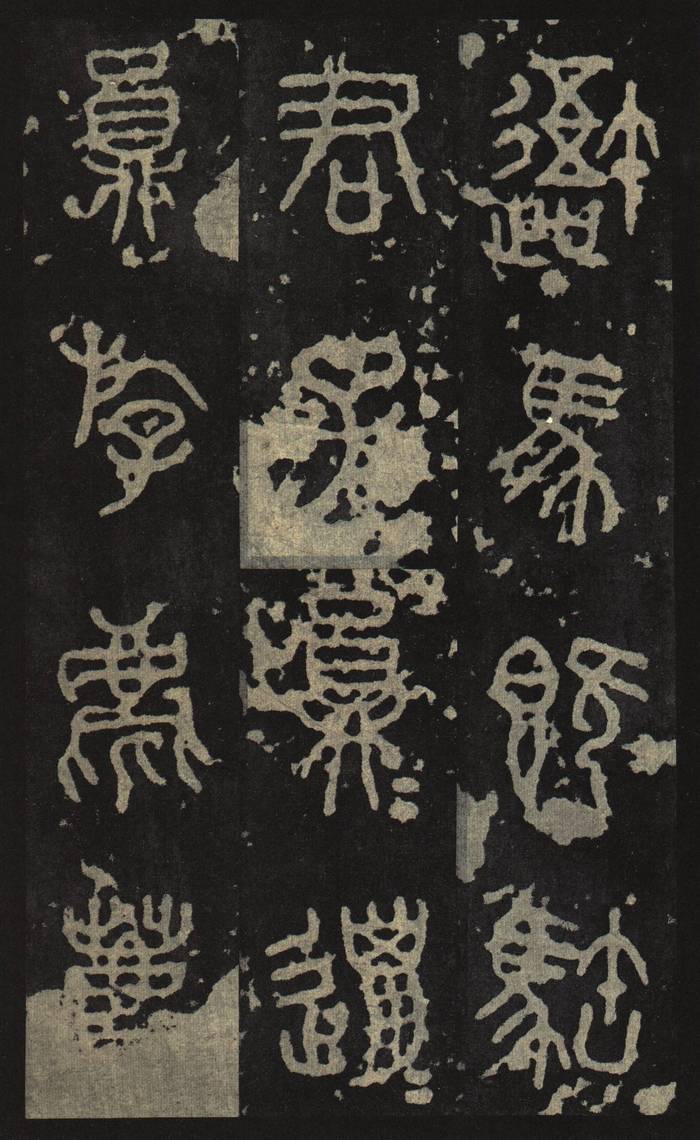 避馬既𩣡
君子員邋
員斿麀鹿